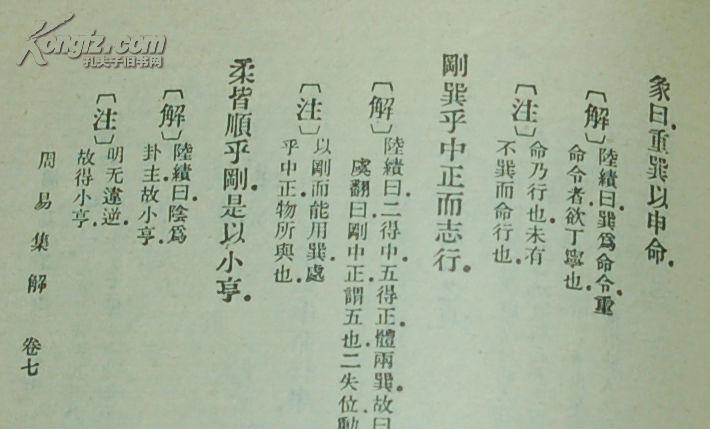 彖曰.重巽以申命.
〔解〕陸績曰.巽爲命令.重
命令者.欲丁寧也.
〔注〕命乃行也.未有
不巽而命行也.
剛巽乎中正而志行.
〔解〕陸績曰.二得中.五得正.體兩巽.故曰
虞翻曰.剛中正.謂五也.二失位.動
〔注〕以剛而能用巽.處
乎中正.物所與也.
柔皆順乎剛.是以小亨.
〔解〕陸績曰.陰爲
卦主.故小亨.
〔注〕明无違逆.
故得小亨.
周易集解 卷七
Kongfz.com
孔夫子旧书网